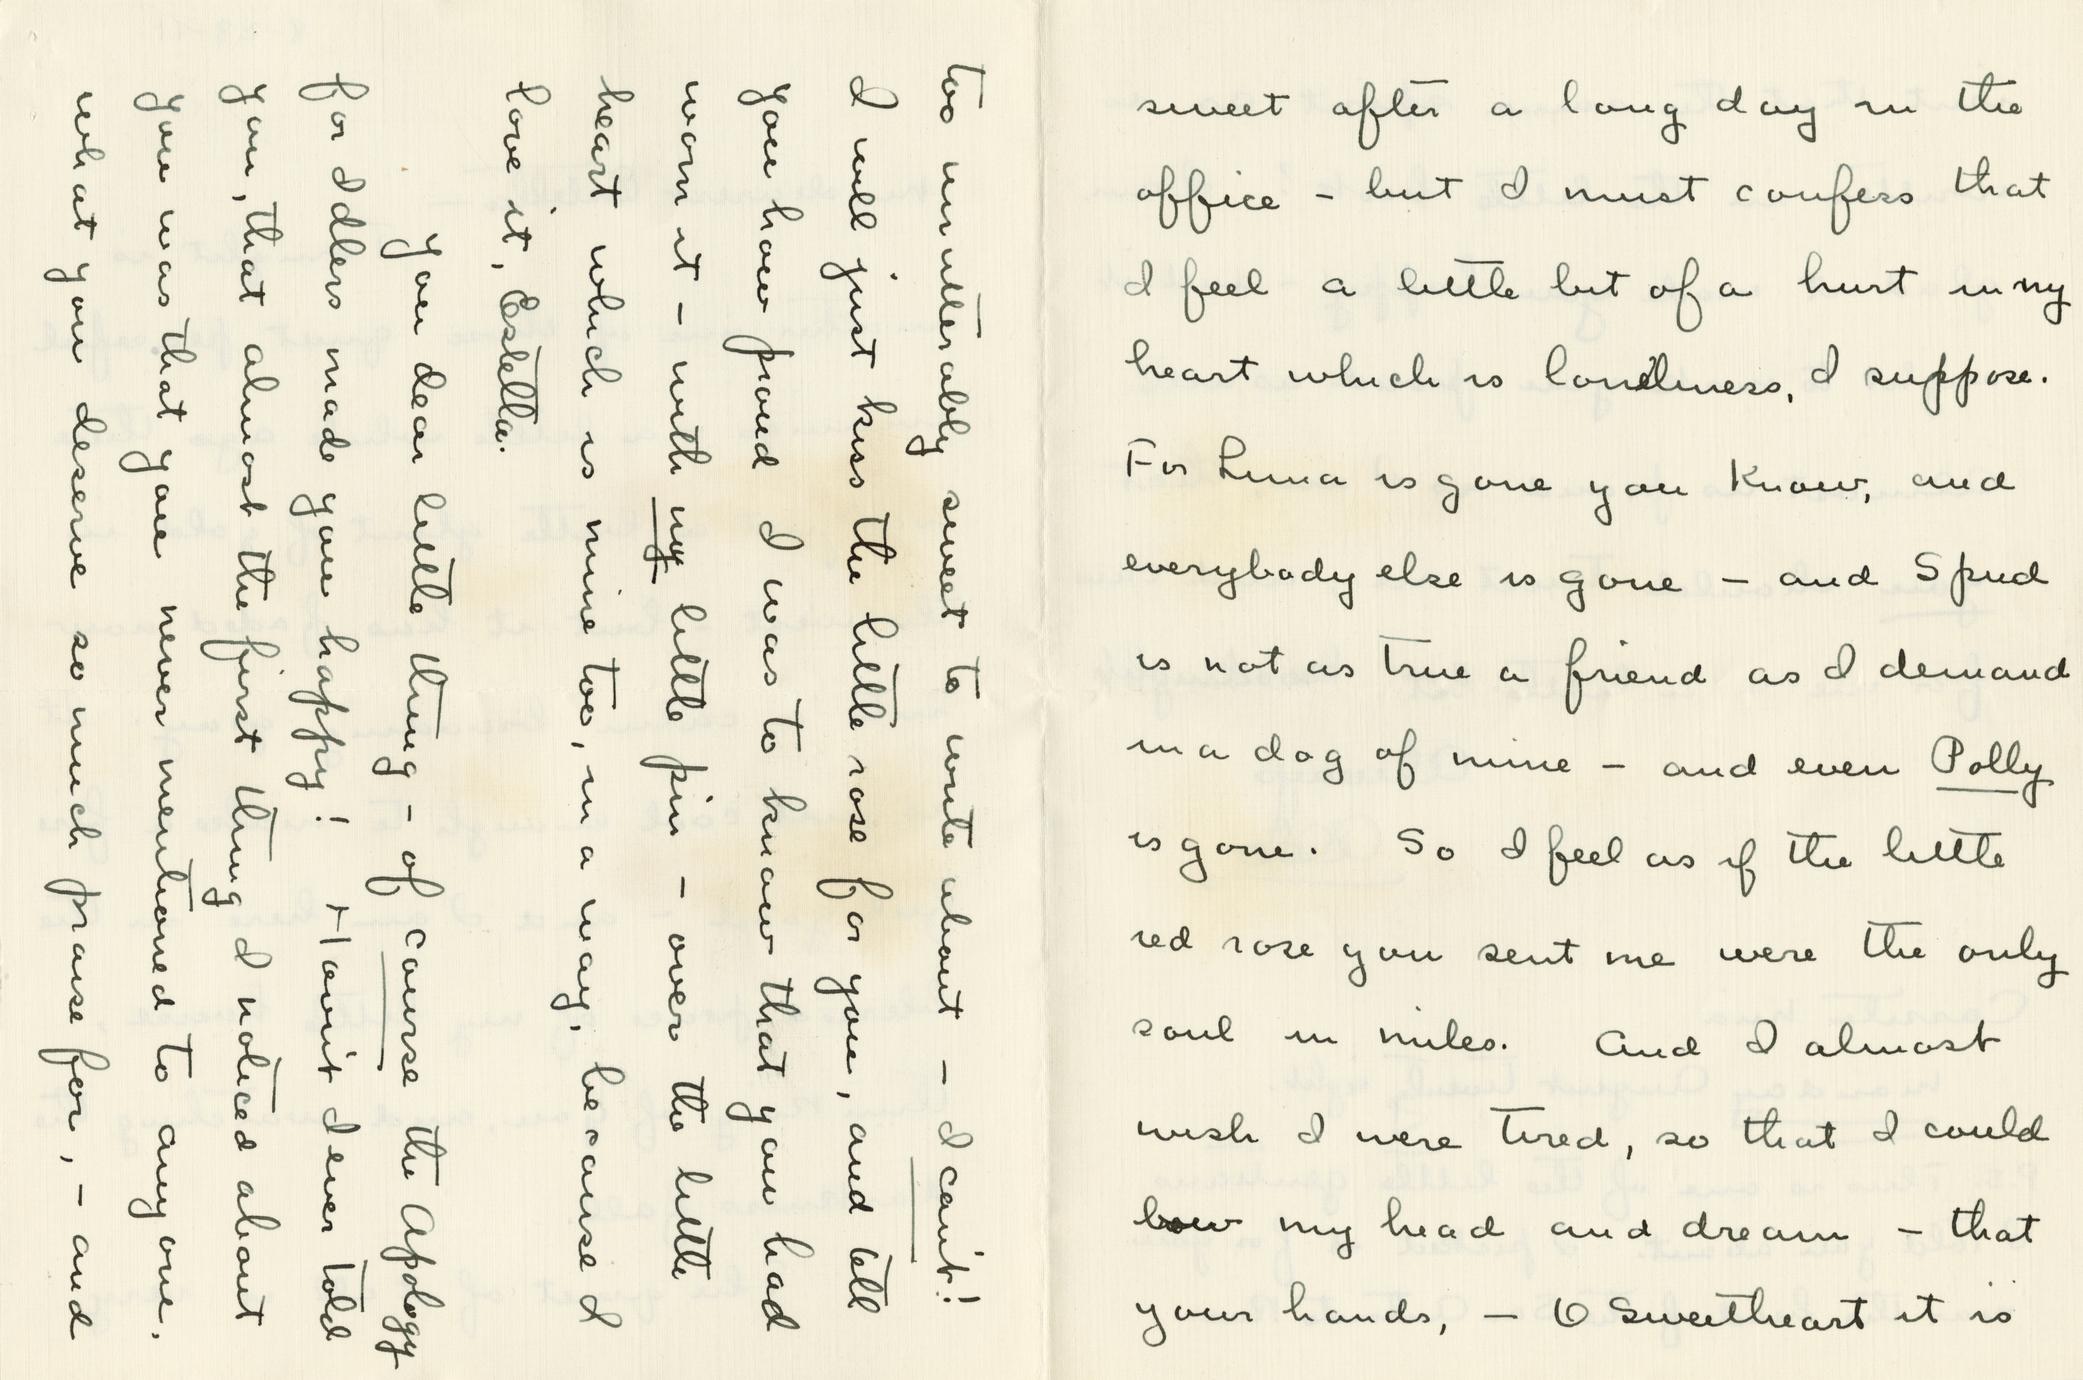 sweet after a long day in the
office – but I must confess that
I feel a little bit of a hurt in my
heart which is loneliness, I suppose.
For Luna is gone you know, and
everybody else is gone – and Spud
is not as true a friend as I demand
in a dog of mine – and even Polly
is gone. So I feel as if the little
red rose you sent me were the only
soul in miles. And I almost
wish I were tired, so that I could
bow my head and dream – that
your hands, – O Sweetheart it is
too unutterably sweet to write about – I can't!
I will just kiss the little rose for you, and tell
you how proud I was to know that you had
worn it – with my little pin – over the little
heart which is mine too, in a way, because I
love it, Estella.
You dear little thing – of course the Apology
for Idlers made you happy! Havin't I ever told
you, that almost the first thing I noticed about
you was that you never mentioned to anyone,
what you deserve so much praise for, – and